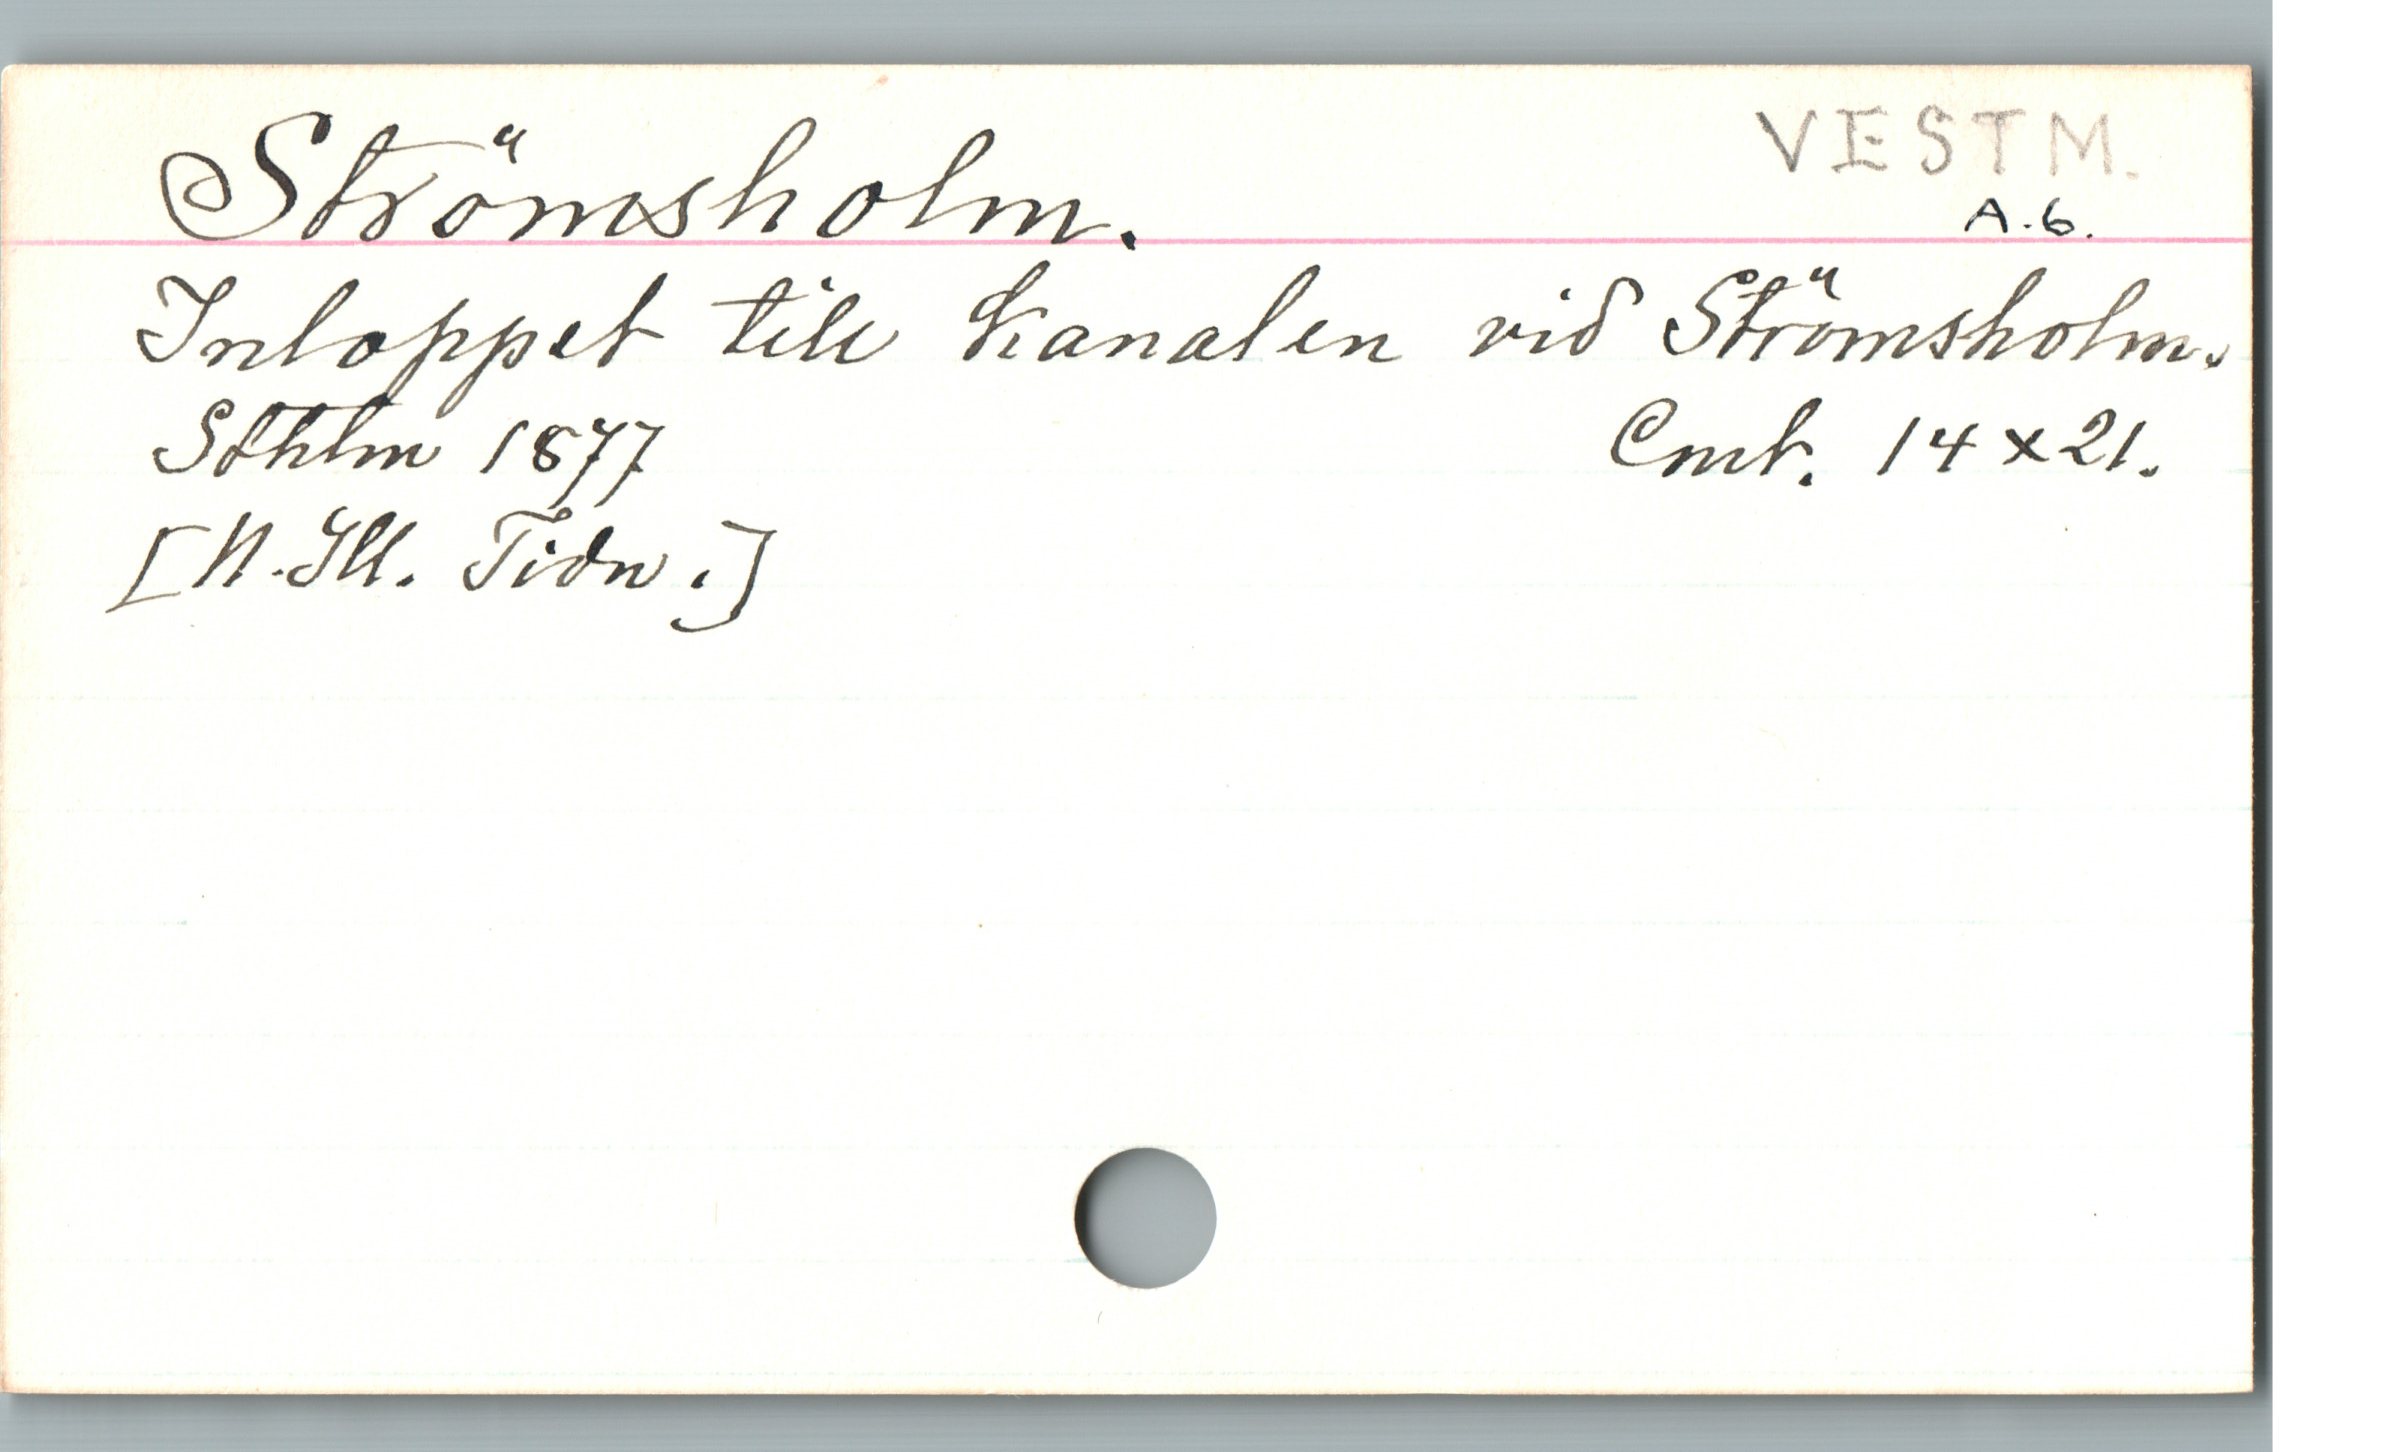 Strömsholm.
VESTM.
A.6.
Inloppet till Kanalen vid Strömsholm.
Sthlm 1877 Cmt. 14 x 21.
[N. Ill. Tidn.]